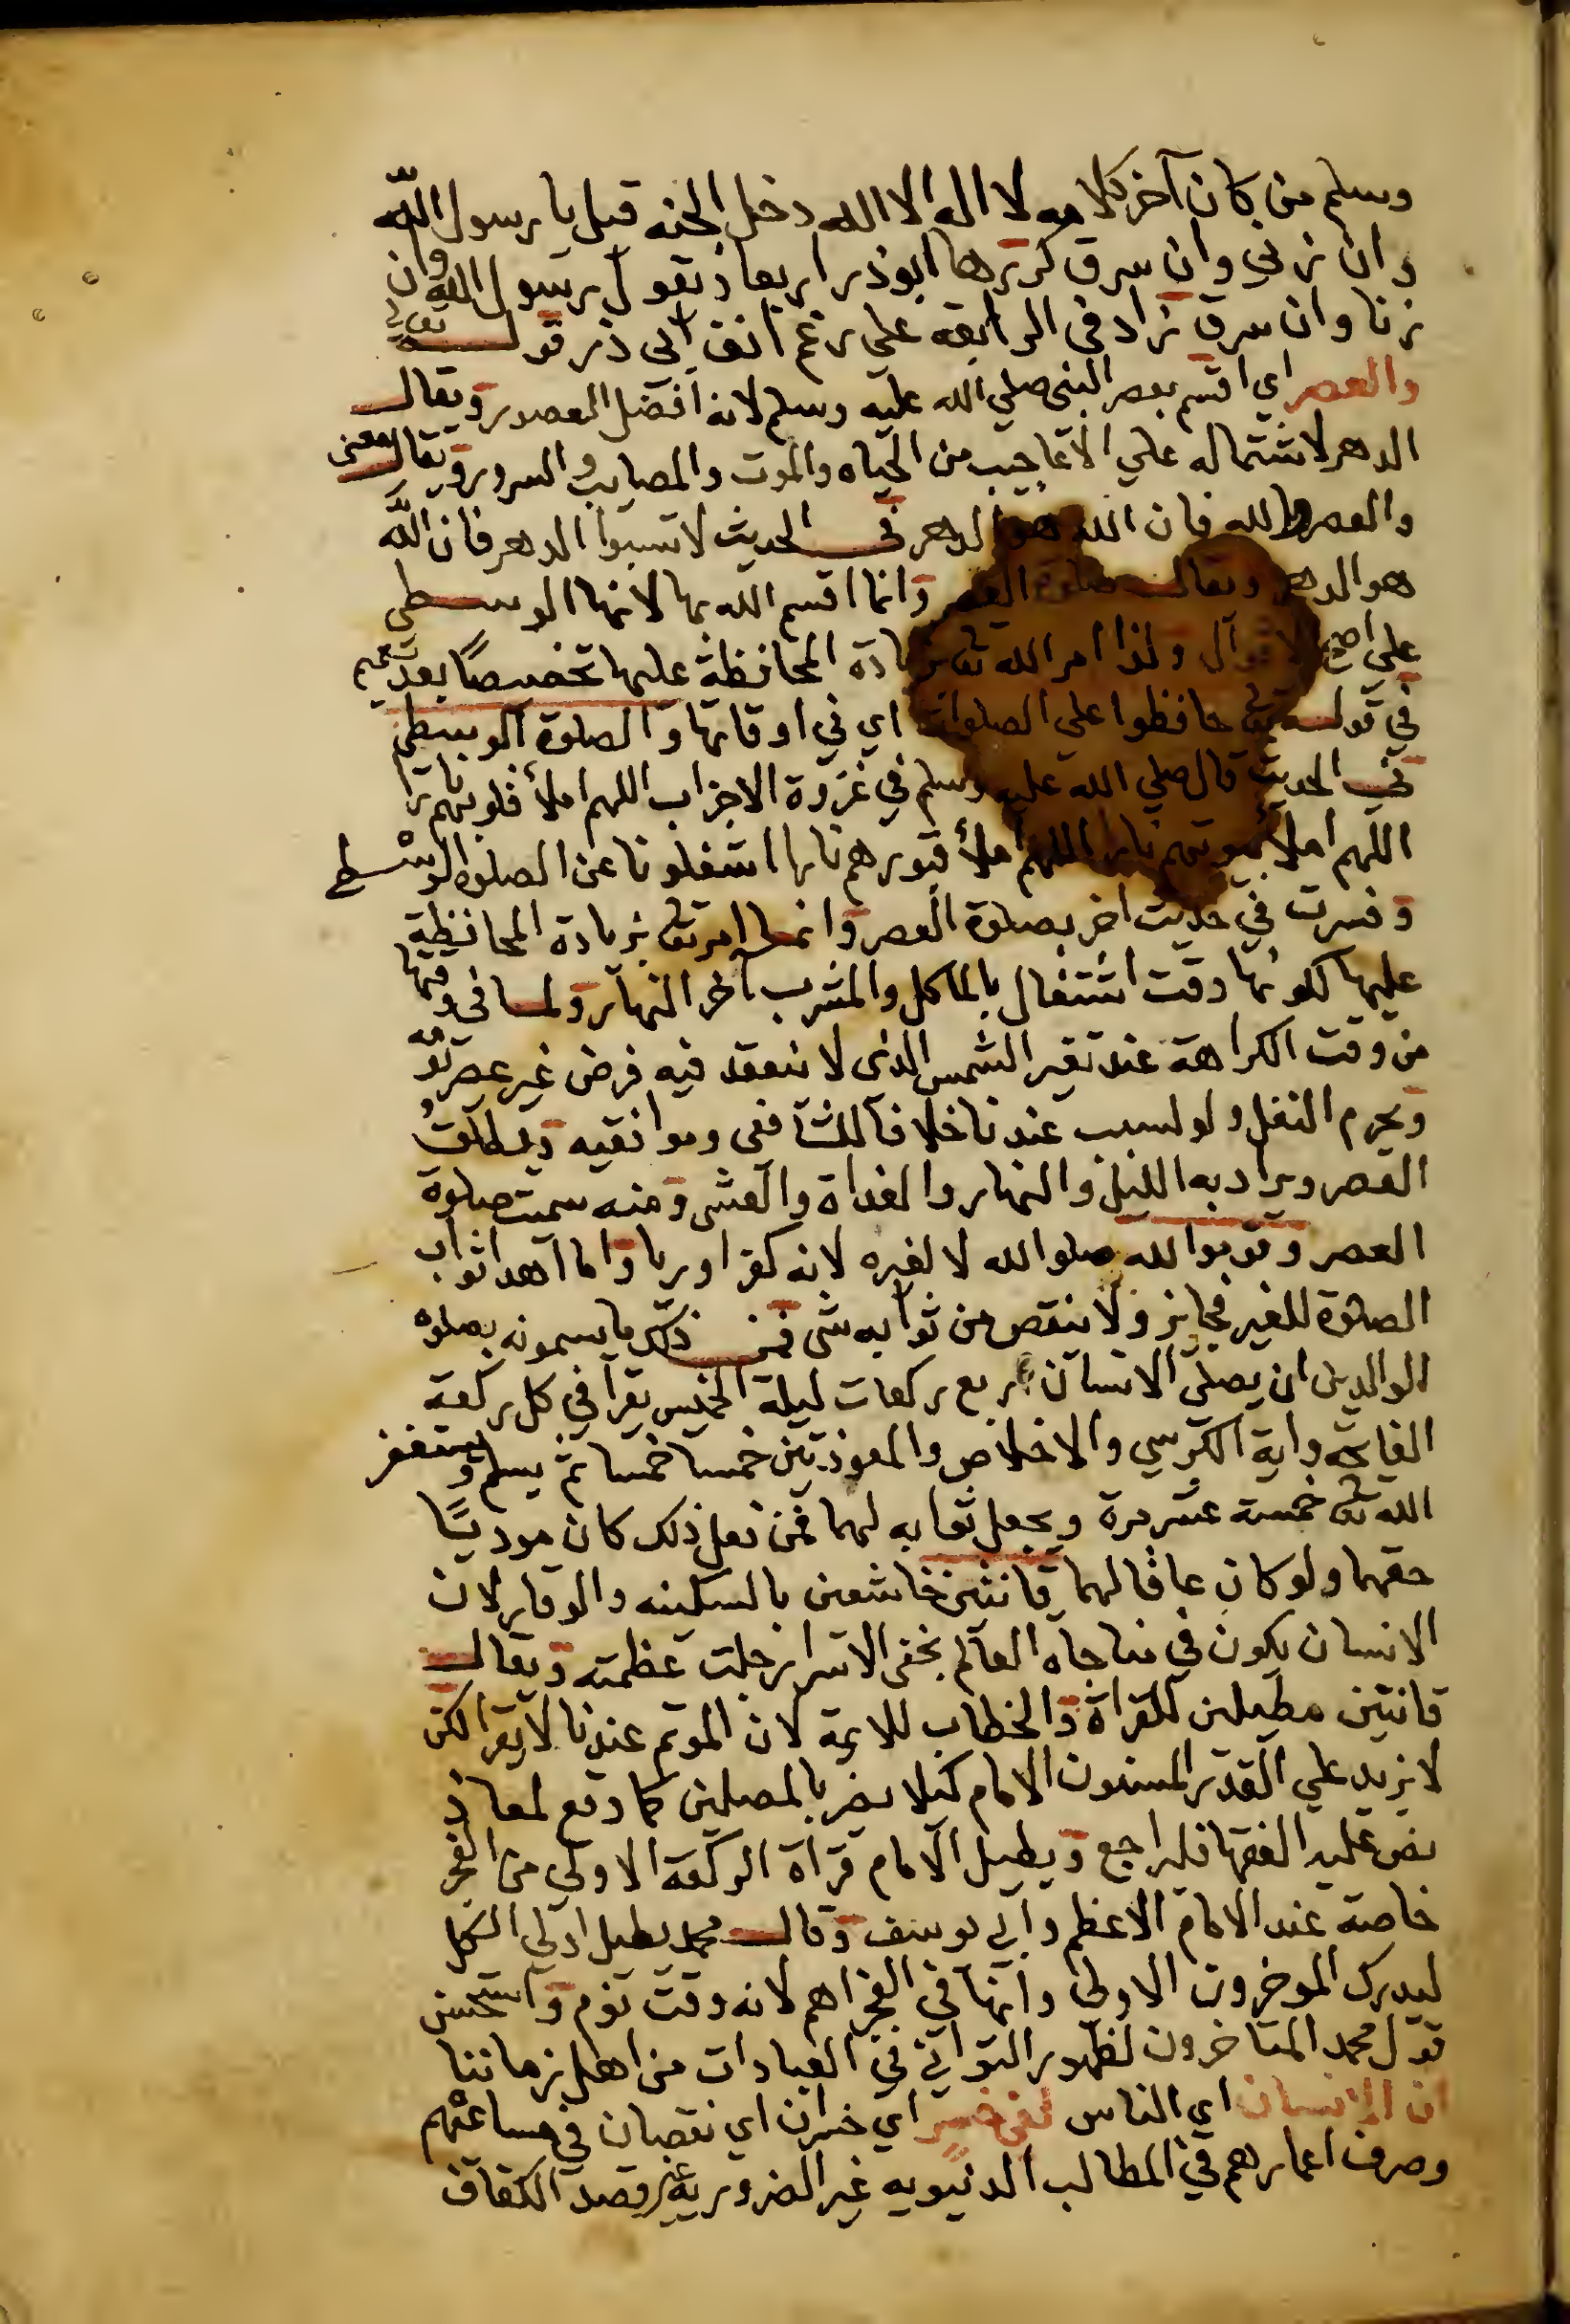 وسلم من كان آخر كلامه لا اله الا الله دخل الجنه قيل يا رسول الله
وان زني وان سرق كررها ابوذر اربعا ويقول رسول الله وان
زنا وان سرق زاد في الرابعه علي رغم انف ابي ذر قوله تعالي
والعصر اي اقسم بعصر النبي صلي الله عليه وسلم لانه افضل العصور ويقال
الدهر لاشتماله علي الاعاجيب من الحياه والموت والمصايب والسرور ويقال معني
والعصر والله فان الله هو الدهر في الحديث لا تسبوا الدهر فان الله
هو الدهر ويقال صلوة العصر وانما اقسم الله بها لانها الوسطي
علي اصح الاقوال ولذا امر الله تع بزيادة المحافظة عليها تخصيصا بعد تعميم
في قوله تع حافظوا علي الصلوات اي في اوقاتها والصلوة الوسطي
في الحديث قال صلي الله عليه وسلم في غزوة الاحزاب اللهم املأ قلوبهم نارا
اللهم املأ بيوتهم نارا اللهم املأ قبورهم نارا اشغلونا عن الصلوة الوسطي
وفسرت في حديث اخر بصلوة العصر وانما امر تع بزيادة المحافظة
عليها لكونها وقت اشتغال بالماكل والمشرب آخر النهار ولما في وقتها
من وقت الكراهة عند تغير الشمس الذي لا ينعقد فيه فرض غير عصر يومه
ويحرم النفل ولو لسبب عندنا خلافا للشافعي وموافقيه ويطلق
العصر ويراد به الليل والنهار والغداة والعشي ومنه سميت صلوة
العصر وقوموا لله صلوا لله لا لغيره لانه كفر او ريا واما اهدا ثواب
الصلوة للغير فجايز ولا ينقص من ثوابه شي فمن ذلك ما يسمونه بصلوة
الوالدين ان يصلي الانسان اربع ركعات ليلة الخميس يقرا في كل ركعة
الفاتحه واية الكرسي والاخلاص والمعوذتين خمسا خمسا ثم يسلم ويستغفر
الله تع خمسة عشر مرة ويجعل ثوابه لهما فمن فعل ذلك كان موديا
حقهما ولو كان عاقا لهما قانتين خاشعين بالسكينه والوقار لان
الانسان يكون في مناجاه العالم بخفي الاسرار جلت عظمته ويقال
قانتين مطيلين للقراة والخطاب للايمة لان الموتم عندنا لا يقرا لكن
لا يزيد علي القدر المسنون الامام كيلا يضر بالمصلين كما وقع لمعاذ
نص عليه الفقها فليراجع ويطيل الامام قراة الركعة الاولي من الفجر
خاصة عند الامام الاعظم وابي يوسف وقال محمد يطيل اولي الكل
ليدرك الموخرون الاولي وانها في الفجر اهم لانه وقت نوم واستحسن
قول محمد المتاخرون لظهور التواني في العبادات من اهل زماننا
ان الانسان اي الناس لفي خسر اي خسران اي نقصان في مساعيهم
وصرف اعمارهم في المطالب الدنيويه غير الضرورية غير قصد الكفاف